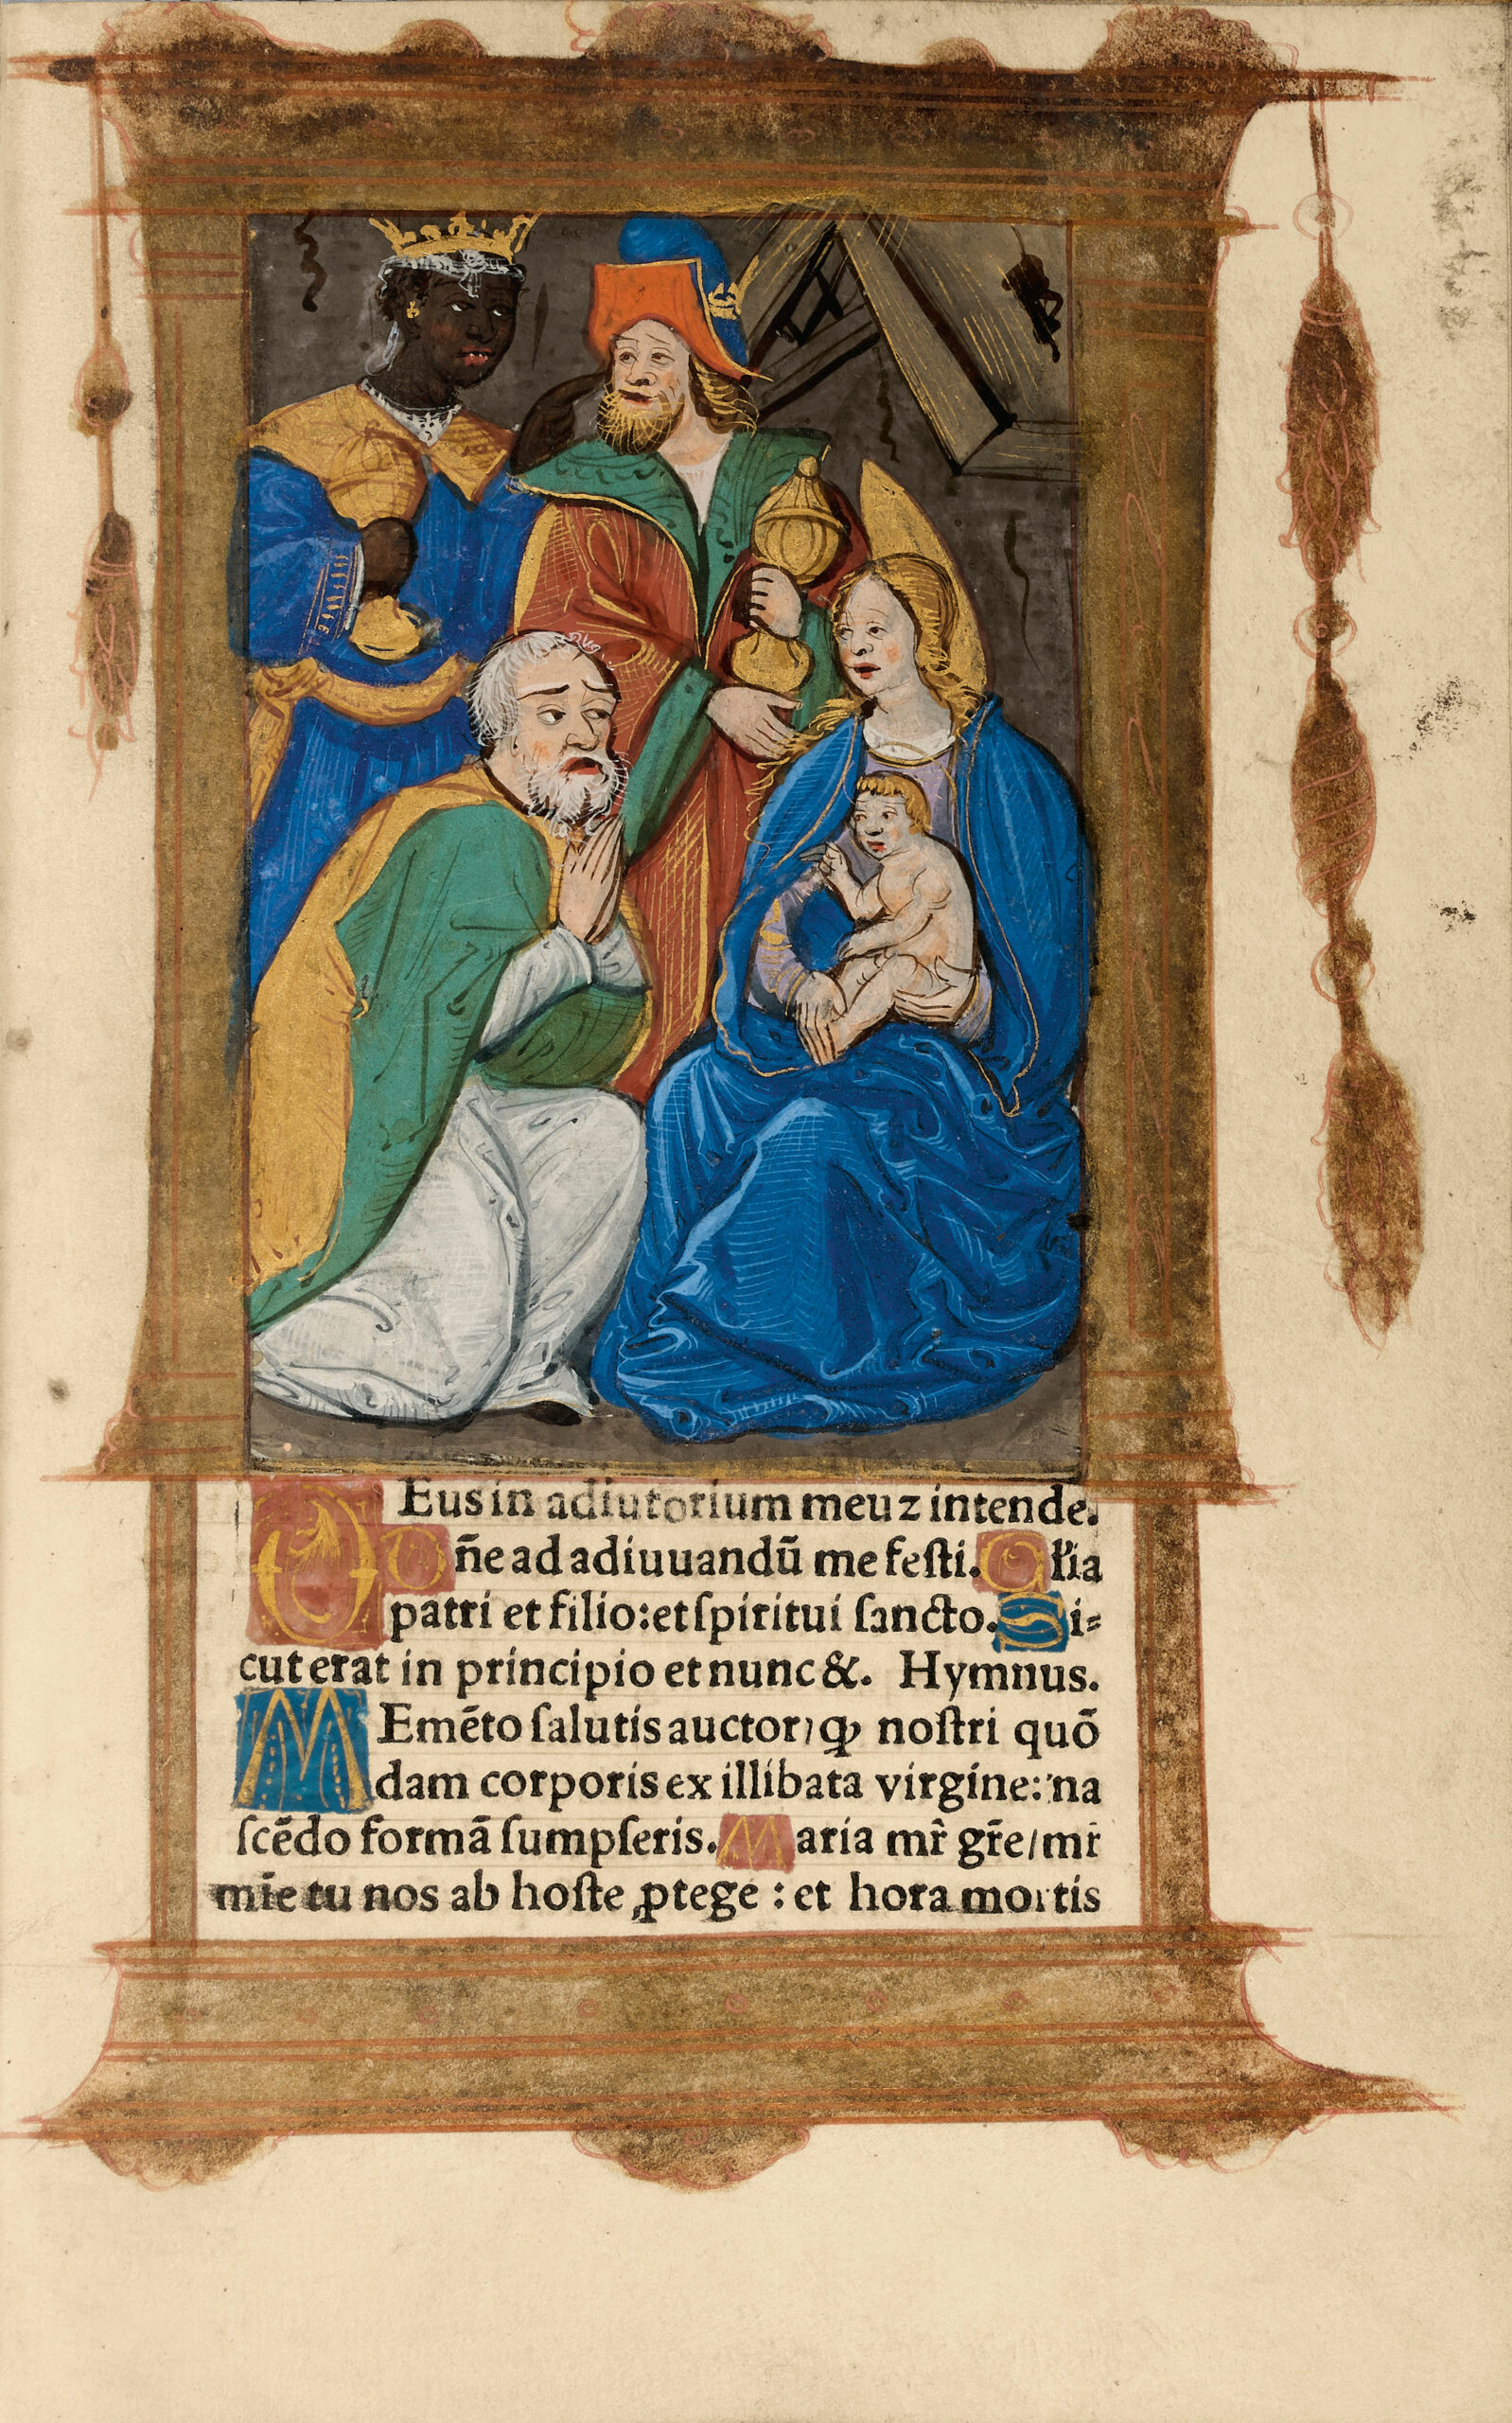 DEus in adiutorium meuz intende.
Dñe ad adiuuandū me feſti. Gľia
patri et filio: et ſpiritui ſancto. Si⸗
cut erat in principio et nunc &. Hymnus.
MEmēto ſalutis auctor/ ꝙ noſtri quō
dam corporis ex illibata virgine: na
ſcēdo formā ſumpſeris. Maria mr̄ gr̄e/ mr̄
mīe tu nos ab hoſte ꝓtege : et hora mortis